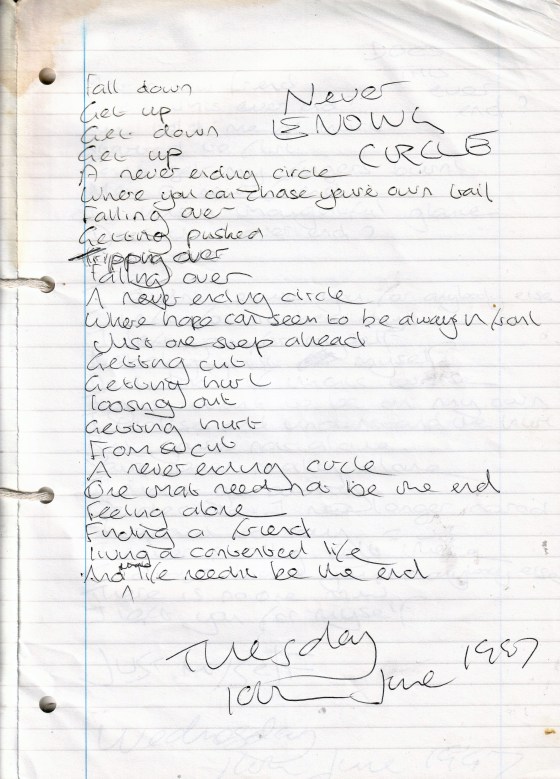 Never
ENDING
CIRCLE
Fall down
Get up
Get down
Get up
A never ending circle
Where you can chase youre own tail
Falling over
Getting pushed
Tripping over
Falling over
A never ending circle
Where hope can seem to be always in front
Just one step ahead
Getting cut
Getting hurt
loosng out
Getting hurt
From a cut
A never ending circle
One that need not be the end
Feeling alone
Finding a friend
living a contented life
And life neednt be the end
Tuesday
10th June 1997